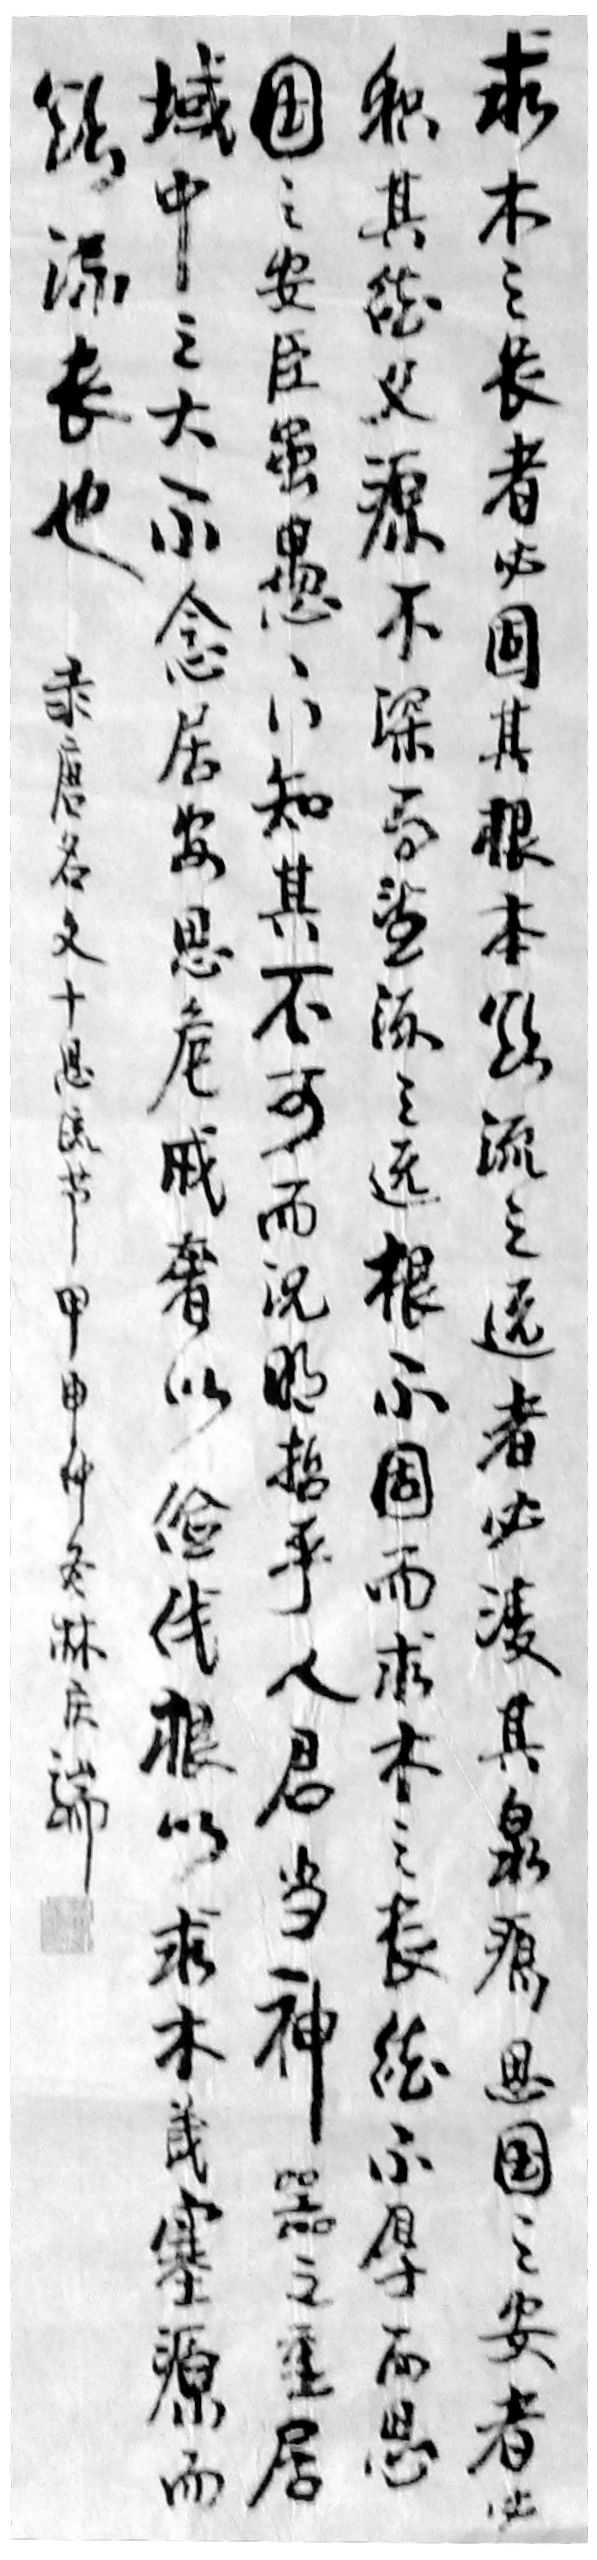 求木之长者必固其根本欲流之远者必浚其泉源思国之安者必
积其德义源不深而望流之远根不固而求木之长德不厚而思
国之安臣虽愚下知其不可而况明哲乎人君当神器之重居
域中之大不念居安思危戒奢以俭伐根以求木茂塞源而
欲流长也
录唐名文十思疏节甲申仲冬林庆端